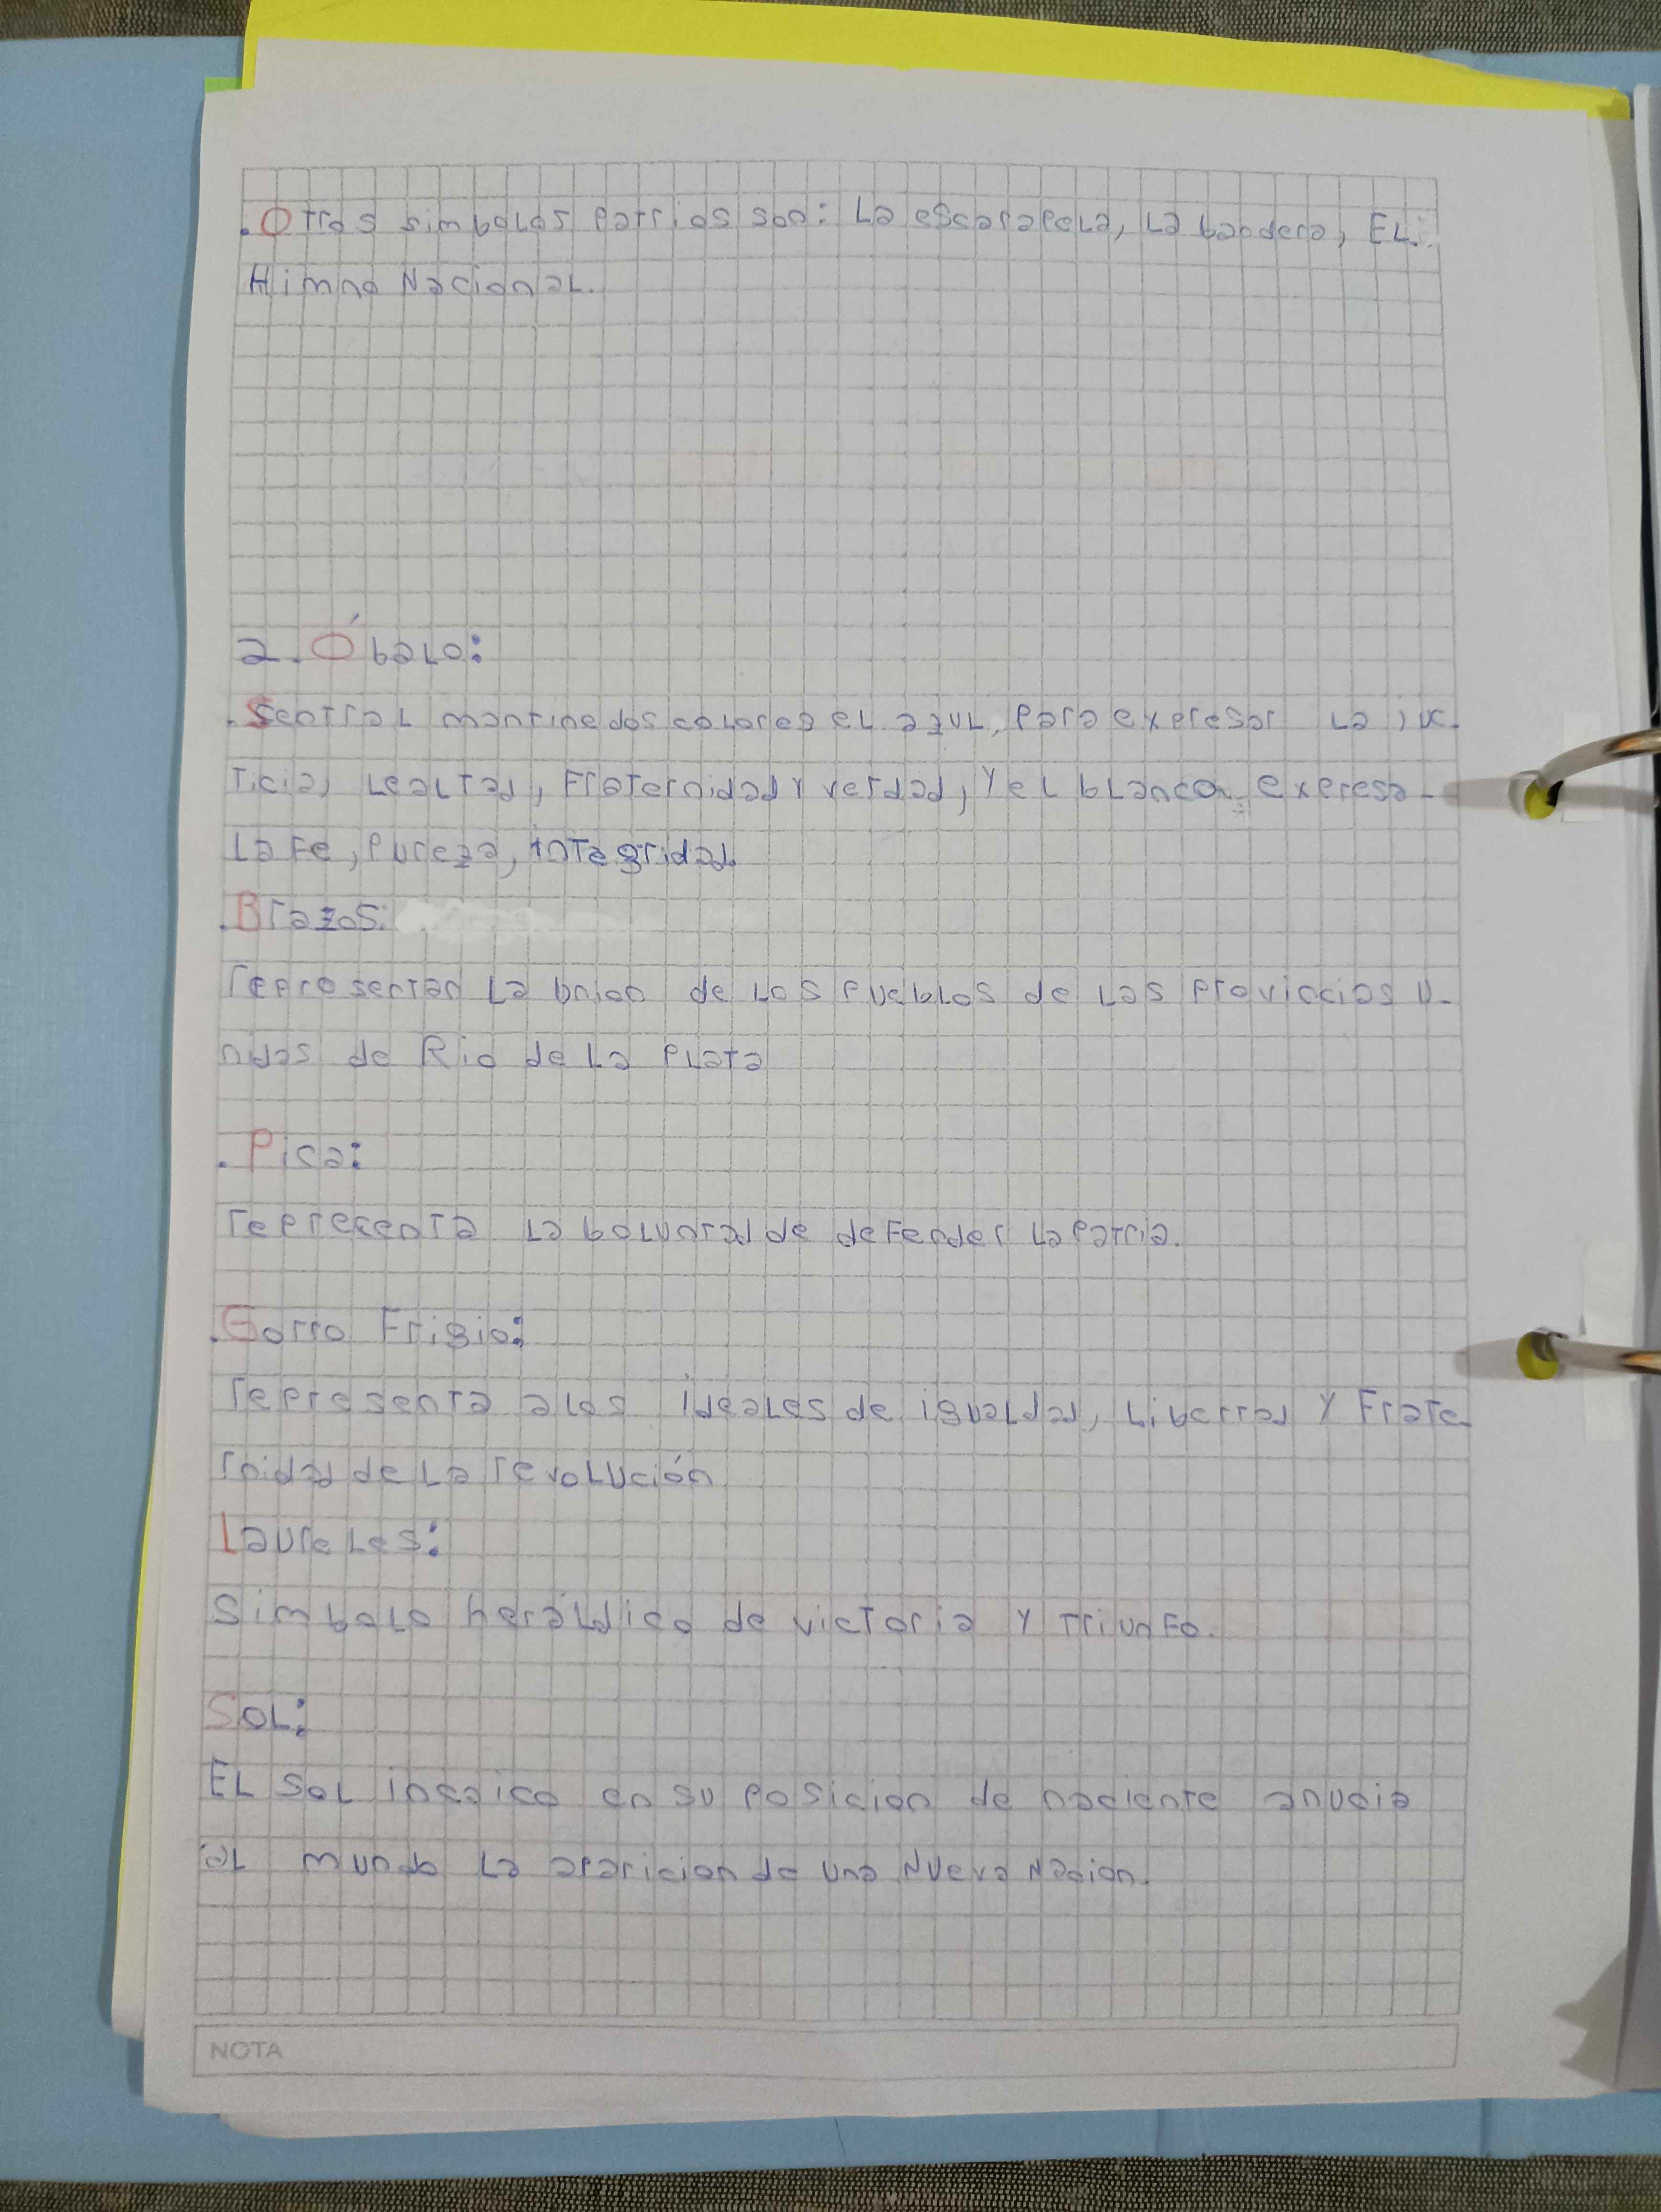 .Otros simbolos patrios son: La escarapela, La bandera, EL
Himno Nacional.
2. Óbalo:
.Sentral mantine dos colores el azul, para expresar la jus-
ticia, Lealtad, Fraternidad y verdad, y el blanco expresa
La Fe, Pureza, integridad
.Brazos:
representan La union de Los Pueblos de Las provincias U-
nidas de Rio de La Plata
.Pica:
representa La boluntad de defender La Patria.
.Gorro Frigio:
representa a los ideales de igualdad, Libertad y Frate
rnidad de La revolución
Laureles:
Simbolo heráldico de victoria y triunfo.
SoL:
EL SoL incaico en su posicion de naciente anucia
al mundo La aparicion de una Nueva Nacion.
NOTA